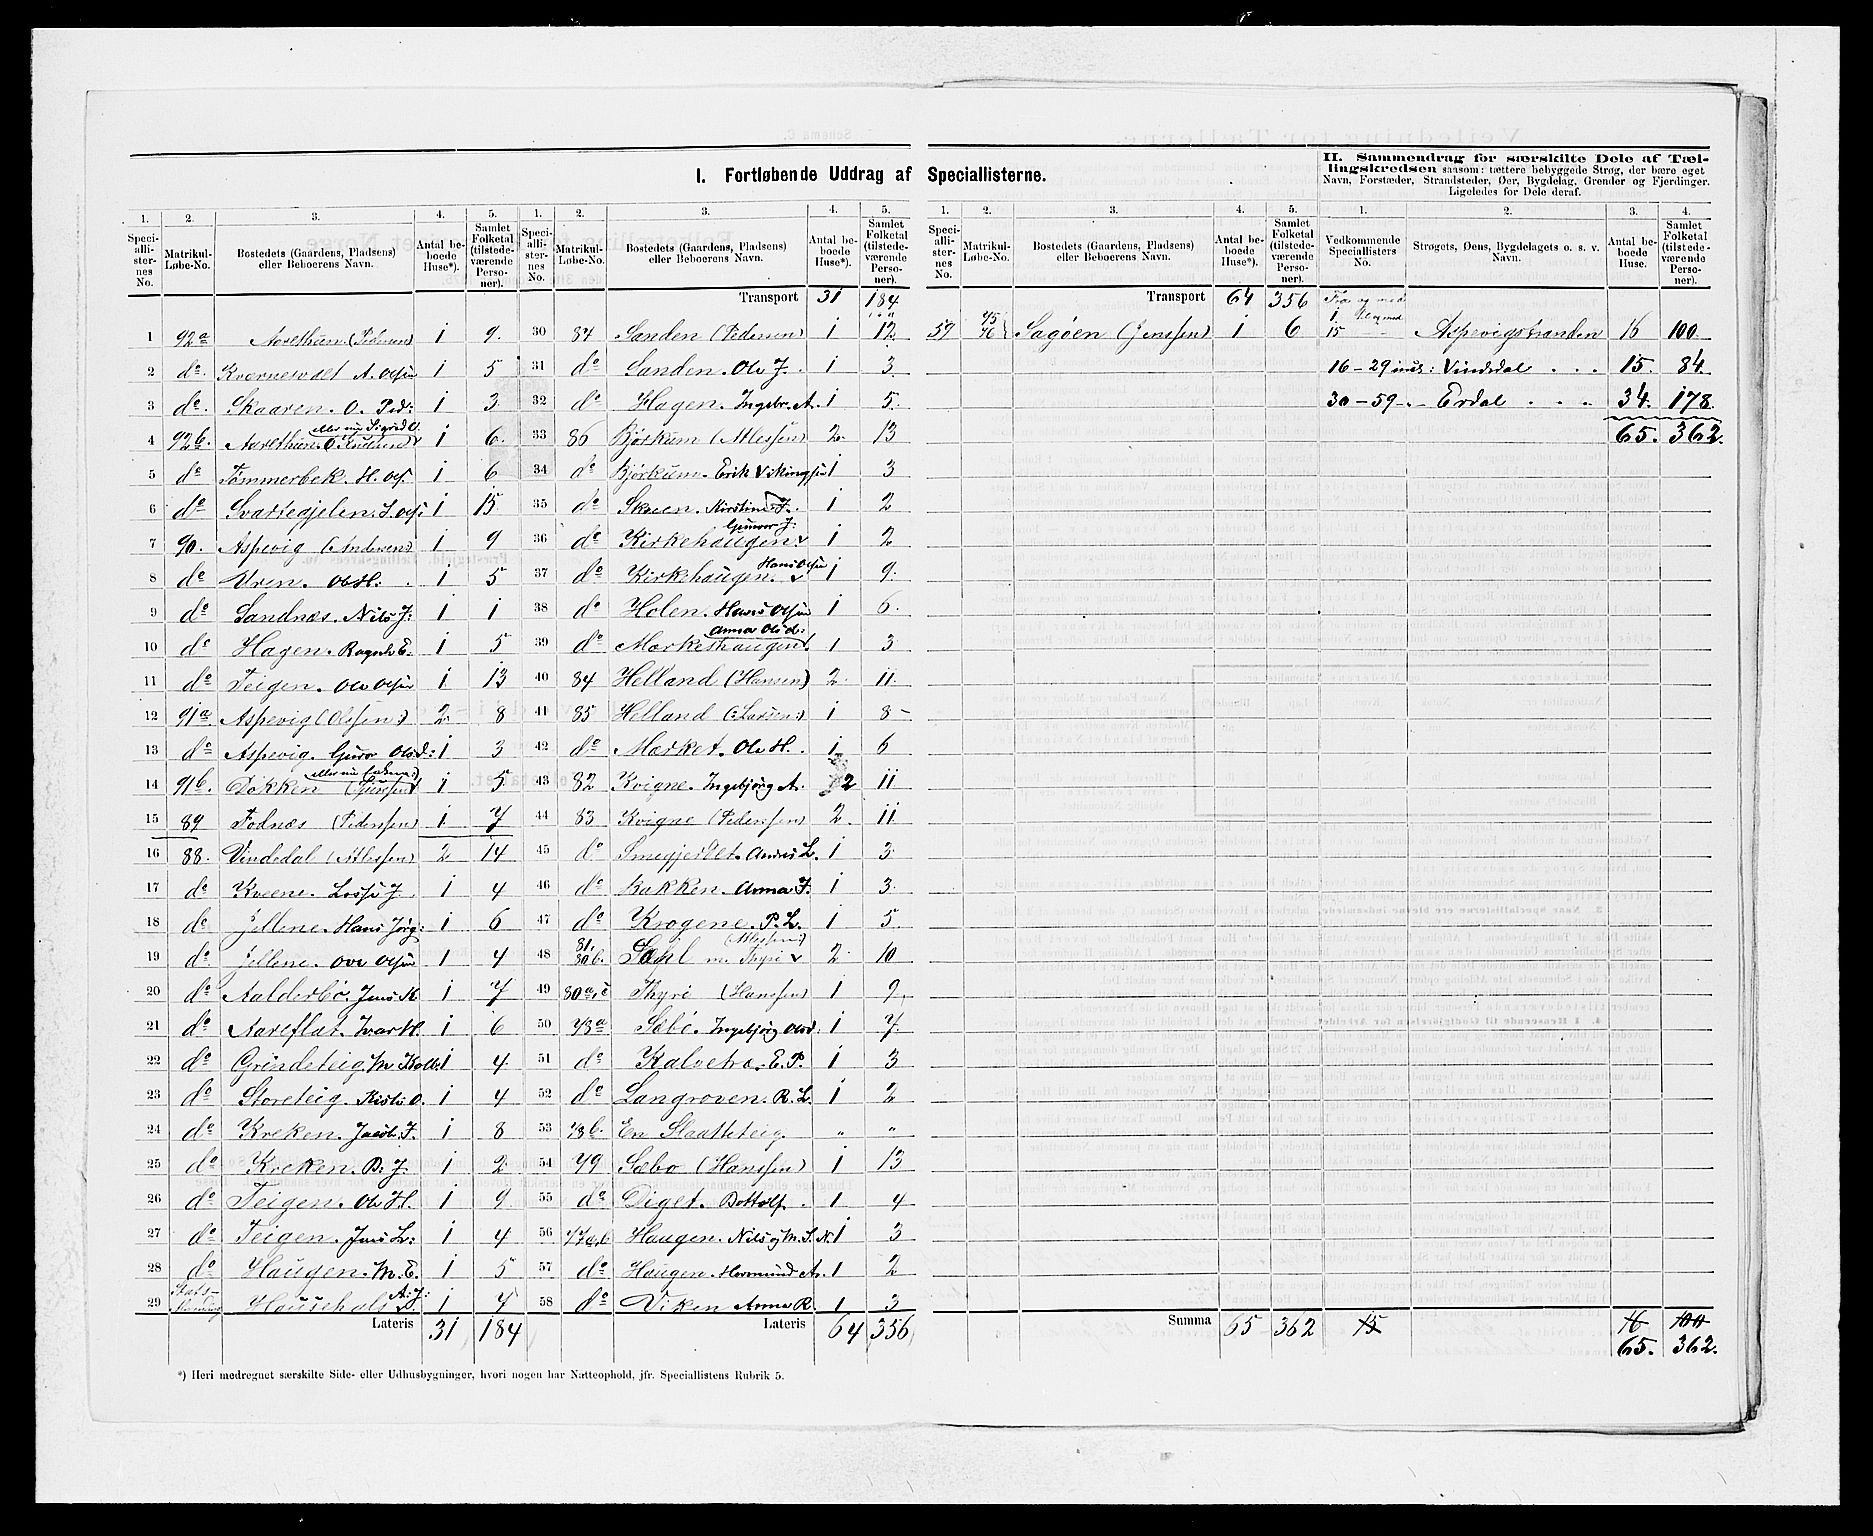 I. Fortløbende Uddrag af Speciallisterne.
II. Sammendrag for særskilte Dele af Tællingskredsen saasom: tættere bebyggede Strøg, der bære eget
Navn, Forstæder, Strandsteder, Øer, Bygdelag, Grender og Fjerdinger.
Ligeledes for Dele deraf.
1. 2. 3. 4. 5.
Speciallisternes No. Matrikul-Løbe-No. Bostedets (Gaardens, Pladsens) eller Beboerens Navn. Antal beboede Huse*). Samlet Folketal (tilstedeværende Personer).
1 92a Aarethun (Pedersen) 1 9.
2 do. Kvernesvolt A. Olsen 1 5
3 do. Skaaren. O. Ped: 1 3
4 92b. Aarethun O. Knudsen eller nu Sigrid O. 1 6.
5 do Tømmerbek. H. Ols. 1 6
6 do Svartegjelen. J. Ols: 1 15
7 90. Aspevig (Andersen) 1 9
8 do Uren. Ole H. 1 5
9 do Sandnæs. Nils J: 1 1
10 do Hagen. Ragnh. E. 1 5
11 do Teigen. Ole Olsen 1 13
12 91a Aspevig (Olsen:) 2 8
13 do Aspevig. Guro Olsd: 1 3
14 91b. Dokken 1 5
15 89 Fodnæs (Pedersen) 1 7
16 88. Vindedal (Atlessen) 2 14
17 do Kveene. Losse J. 1 4
18 do Jellene. Hans Jørg: 1 6
19 do Jellene. Ove Olsen 1 4
20 do Aalderbø. Jens M. 1 7
21 do Aareflat. Ivar H. 1 6
22 do Grindsteig. M. Kolb. 1 4
23 do Storeteig. Kists O. 1 4
24 do Kreken. Jacob J. 1 8
25 do Kreken. B: J. 1 2
26 do Teigen. Ole H. 1 9
27 do Teigen. Jens L: 1 4
28 do Haugen. M. E. 1 5
29 Hausehals A: J: 1 4
Lateris 31 184
1. 2. 3. 4. 5.
Speciallisternes No. Matrikul-Løbe-No. Bostedets (Gaardens, Pladsens) eller Beboerens Navn. Antal beboede Huse*). Samlet Folketal (tilstedeværende Personer).
Transport 31 184
30 87 Sanden (Pedersen) 1 12
31 do Sanden. Ole J. 1 3
32 do Hagen. Ingebr. A. 1 5.
33 86 Bjørkum (Atlessen) 2. 13
34 do Bjørkum. Erik Vikingsen 1 3
35 do Skoen. Kirstine J. 1 2
36 do Kirkehaugen. Gunvor J: 1 2
37 do Kirkehaugen. Hans Olsen 1 9.
38 do Holen. Hans Olsen 1 6.
39 do Mærkeshaugen. Anna Olsd: 1 3
40 84 Helland (Hansen) 2. 11.
41 85 Helland (:Larsen:) 1 8
42 do Mærket. Ole H. 1 6
43 82 Kvigne. Ingebjørg A. 2 11
44 83 Kvigne (Pedersen) 2. 11
45 do Smegjerdet. Andreas L. 1 3
46 do Bakken. Anna J. 1 3.
47 do Krogene. P. L. 1 5
48 81. 80b. m. Thyri (Atlessen) 2 10
49 80a,c Thyri (Hanssen) 1 9.
50 78a Sæbø. Ingebjørg Olsd. 1 7.
51 do Kalvetræ. E. P. 1 3
52 do Langroven. R. L. 1 2
53 78b. En Slaatteteig. " "
54 79 Sæbø (Hanssen) 1 13
55 do Diget. Bottolf 1 4
56 77a,b Haugen. Nils og M. S. N. 1 3
57 do Haugen. Hermund A. 1 2
58 do Viken Anna R. 1 3
Lateris 64 356
1. 2. 3. 4. 5.
Speciallisternes No. Matrikul-Løbe-No. Bostedets (Gaardens, Pladsens) eller Beboerens Navn. Antal beboede Huse*). Samlet Folketal (tilstedeværende Personer).
Transport 64 356
59 75 76 Sagøen (Jenssen) 1 6
Summa 65 362
1. 2. 3. 4.
Vedkommende Speciallisters No. Strøgets, Øens, Bygdelagets o. s. v. Navn. Antal beboede Huse. Samlet Folketal (tilstedeværende Personer).
Fra og med
1 til og med
15 Aspevigstranden 16 100
16 – 29 incl: Vindedal . . . 15. 84.
30 – 59. - Erdal . . . 34. 178.
65. 362.
15 16 100
65. 362.
*) Heri medregnet særskilte Side- eller Udhusbygninger, hvori nogen har Natteophold, jfr. Speciallistens Rubrik 5.